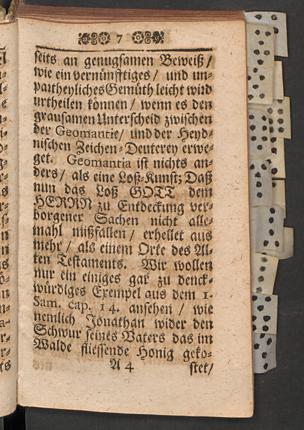 7
seits an genugsamen Beweiß /
wie ein vernünfftiges / und un-
partheyliches Gemüth leicht wird
urtheilen können / wenn es den
grausamen Unterscheid zwischen
der Geomantie / und der Heyd-
nischen Zeichen-Deuterey erwe-
get. Geomantia ist nichts an-
ders / als eine Loß-Kunst; Daß
nun das Loß GOTT dem
HERRN zu Entdeckung ver-
borgener Sachen nicht alle-
mahl mißfallen / erhellet aus
mehr / als einem Orte des Al-
ten Testaments. Wir wollen
nur ein einiges gar zu denck-
würdiges Exempel aus dem 1.
Sam. cap. 14. ansehen / wie
nemlich Jonathan wider den
Schwur seines Vaters das im
Walde fliessende Honig geko-
A 4 stet /